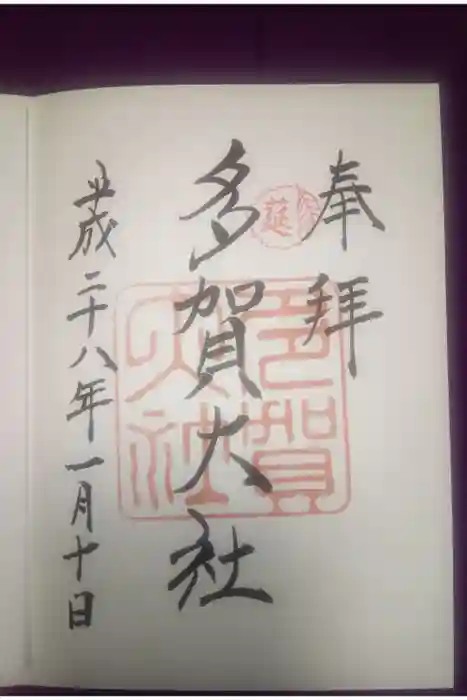 奉拝
多賀大社
平成二十八年一月十日
多賀大社
延